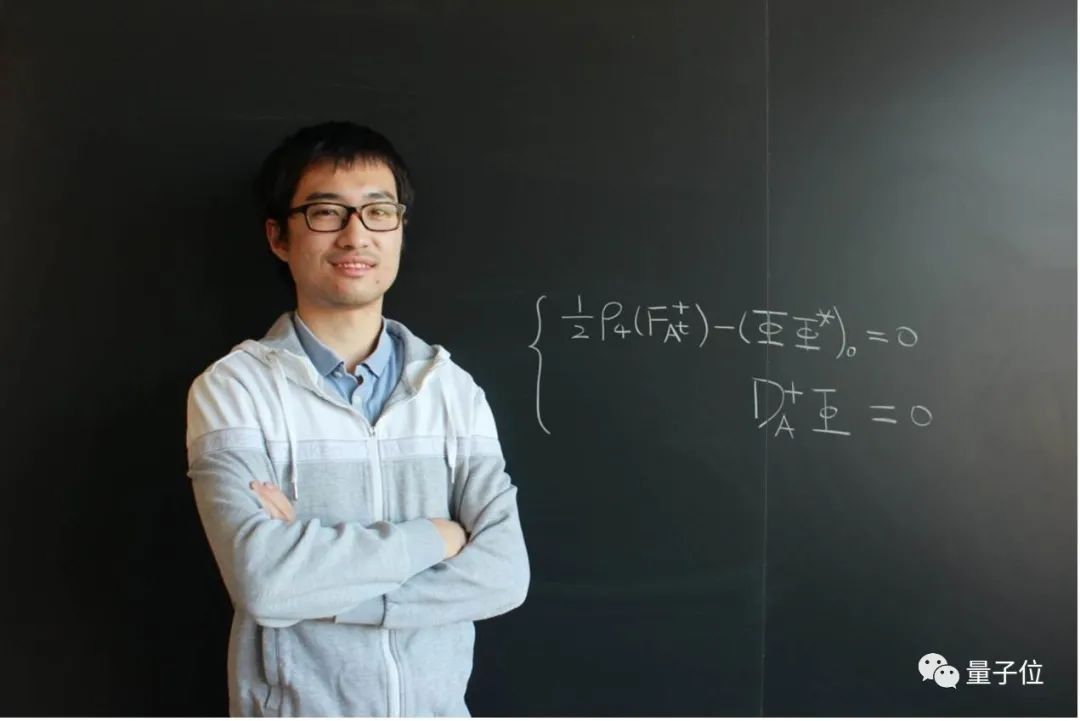 { 1/2 ρ₄(F⁺_{Aᵗ}) − (ΦΦ*)₀ = 0
D⁺_A Φ = 0
量子位